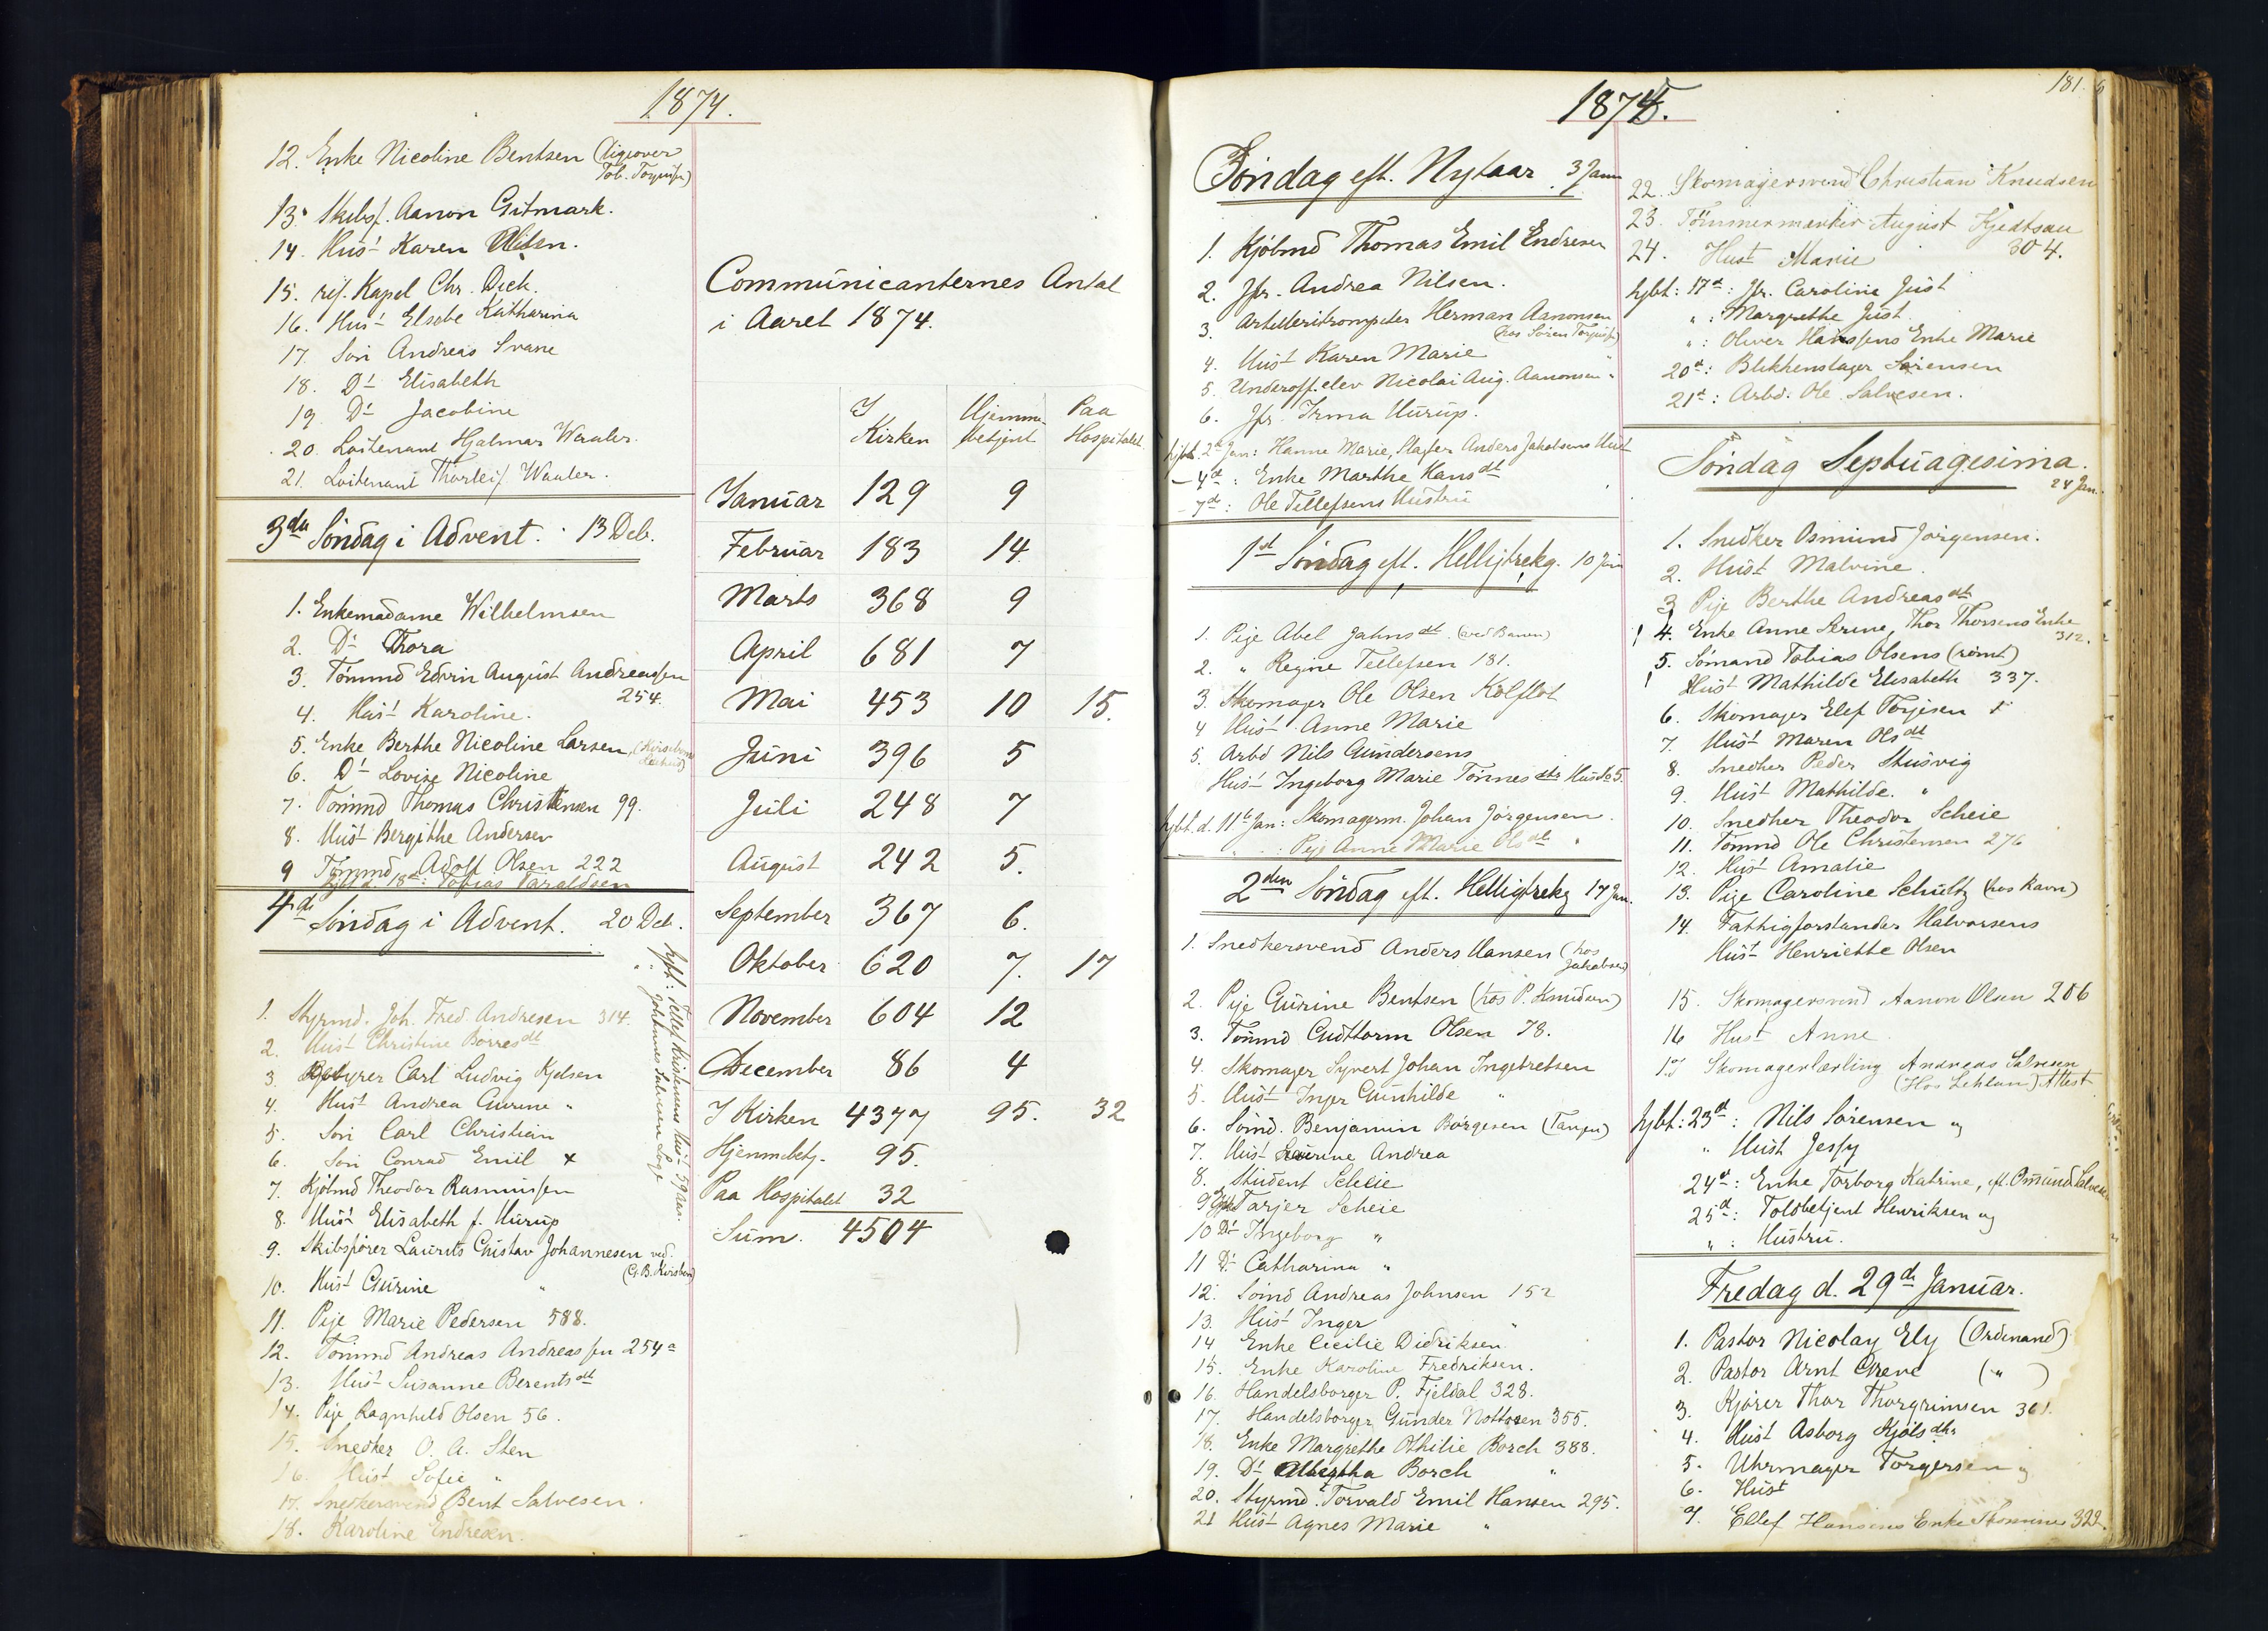 1874.
12. Enke Nicoline Bentsen (ligeover
Tob. Torjusen)
13. Skibsf. Aanon Gitmark.
14. Hust Karen Nilsen.
15. res. Kapel Chr. Dick.
16. Hust Elsebe Katharina
17. Søn Andreas Svane
18. Dt Elisabeth
19. Dt Jacobine
20. Løitenant Hjalmar Waaler.
21. Løitenant Thorleif Waaler.
3die Søndag i Advent. 13 Deb.
1. Enkemadame Wilhelmsen
2. Dt Thora
3. Tømmd Edvin August Andreassen
254.
4. Hust Karoline.
5. Enke Berthe Nicoline Larsen,
6. Dt Lovise Nicoline
7. Tømmd Thomas Christensen 99.
8. Hust Bergithe Andersen
9 Tømmd Adolf Olsen 222
hjbt d. 18de: Tobias Taraldsen
4de Søndag i Advent. 20 Deb.
hjbt: Tellef Kristensens Hust 59 aar.
" : Johannes Salvesen Loge
1. Styrmd. Joh. Fred Andresen 314.
2. Hust Christine Børresdt
3. Carl Ludvig Kjelsen
4. Hust Andrea Gurine "
5. Søn Carl Christian
6. Søn Conrad Emil x
7. Kjøbmd Theodor Rasmussen
8. Hust Elisabeth f. Hurup
9. Skibsfører Laurits Gustav Johannesen ved.
(G. B. Kirseben)
10. Hust Gurine "
11. Pige Marie Pedersen 588.
12. Tømmd Andreas Andreassen 254a
13. Hust Susanne Berentsdt
14. Pige Ragnhild Olsen 56.
15. Snedker O. A. Sten
16. Hust Sofie "
17. Snedkersvend Bent Salvesen.
18. Karoline Endresen.
Communicanternes Antal
i Aaret 1874.
I Kirken Hjemmebetjent. Paa Hospitalet
Januar 129 9
Februar 183 14
Marts 368 9
April 681 7
Mai 453 10 15.
Juni 396 5
Juli 248 7
August 242 5.
September 367 6.
Oktober 620 7. 17
November 604 12
December 86 4
I Kirken 4377 95. 32
Hjemmebtj. 95.
Paa Hospitalet 32
Sum. 4504
1875.
181.
Søndag eft. Nytaar 3 Janu
1. Kjöbmd Thomas Emil Endresen
2. Jfr. Andrea Nilsen.
3. Artilleritrompeter Herman Aanonsen
(hos Søren Torjus)
4. Hust Karen Marie "
5. Underoff. elev Nicolai Aug. Aanonsen "
6. Jfr. Irma Hurup.
hjbt. 2de Jan: Hanne Marie, Slagter Anders Jakobsens Hust
- 4de: Enke Marthe Hansdt
- 7de: Ole Tellefsens Hustru
1ste Søndag eft. Helligtrekg. 10 Jan
1. Pige Abel Jahnsdt. (ved Banen)
2. " Regine Tellefsen 181.
3. Skomager Ole Olsen Kolflot
4 Hust Anne Marie
5. Arbd Nils Gundersens
Hust Ingeborg Marie Tønnesdtr Hus No 5.
hjbt. d. 11te Jan: Skomagerm. Johan Jørgensen.
" : Pige Anne Marie Olsdt "
2den Søndag eft. Helligtrekg 17 Jan.
1. Snedkersvend Anders Hansen (hos
Jakobsen)
2. Pige Gurine Bentsen (hos P. Knudsen)
3. Tømmd Guttorm Olsen 78.
4. Skomager Syvert Johan Ingebretsen
5. Hust Inger Gunhilde "
6. Sømd. Benjamin Børgesen (Tangen)
7. Hust Laurine Andrea
8. Student Scheie
9 Tarjer Scheie
10 Dt Ingeborg "
11 Dt Catharina "
12. Sømd Andreas Johnsen 152
13. Hust Inger "
14 Enke Cicilie Didriksen
15. Enke Karoline Fredriksen.
16. Handelsborger P. Fjeldal 328.
17. Handelsborger Gunder Nottosen 355.
18. Enke Margrethe Othilie Borch 388.
19. Dt Albertha Borch "
20. Styrmd. Torvald Emil Hansen 295.
21 Hust Agnes Marie "
22. Skomagersvend Christian Knudsen
23. Tømmermester August Kjedtsau
304.
24. Hust Marie
hjbt: 17de: Jfr. Caroline Just
" : Margrethe Just
" : Oliver Hanssens Enke Marie
20de: Blikkenslager Sørensen
21de: Arbd. Ole Salvesen.
Søndag Septuagesima.
24 Jan.
1. Snedker Osmund Jørgensen.
2. Hust Malvine.
3 Pige Berthe Andreasdt
! 4. Enke Anne Serine, Thor Thorsens Enke
312.
5. Sømand Tobias Olsens (rømt)
! Hust Mathilde Elisabeth 337.
6. Skomager Elef Torjesen
7. Hust Maren Olsdt
8. Snedker Peder Skusvig
9. Hust Mathilde. "
10. Snedker Theodor Scheie
11. Tømmd Ole Christensen 276
12. Hust Amalie
13. Pige Caroline Schultz (hos Ravn)
14. Fattigforstander Halvorsens
Hust Henriette Olsen
15. Skomagersvend Aanon Olsen 206
16 Hust Anne
17 Skomagerlærling Andreas Salvesen
(Hos Lehland) Attest
hjbt: 23de: Nils Sørensen og
" Hust Jessy
24de: Enke Torborg Katrine, eft. Omund Salvesen
25de: Toldbetjent Henriksen og
" : Hustru.
Fredag d. 29de Januar.
1. Pastor Nicolay Ely (Ordinand)
2. Pastor Arnt Greve ( " )
3. Kjører Thor Thorgrimsen 361.
4. Hust Asborg Kjølsdtr
5. Uhrmager Torgersen og
6. Hust
7. Ellef Hansens Enke 322.